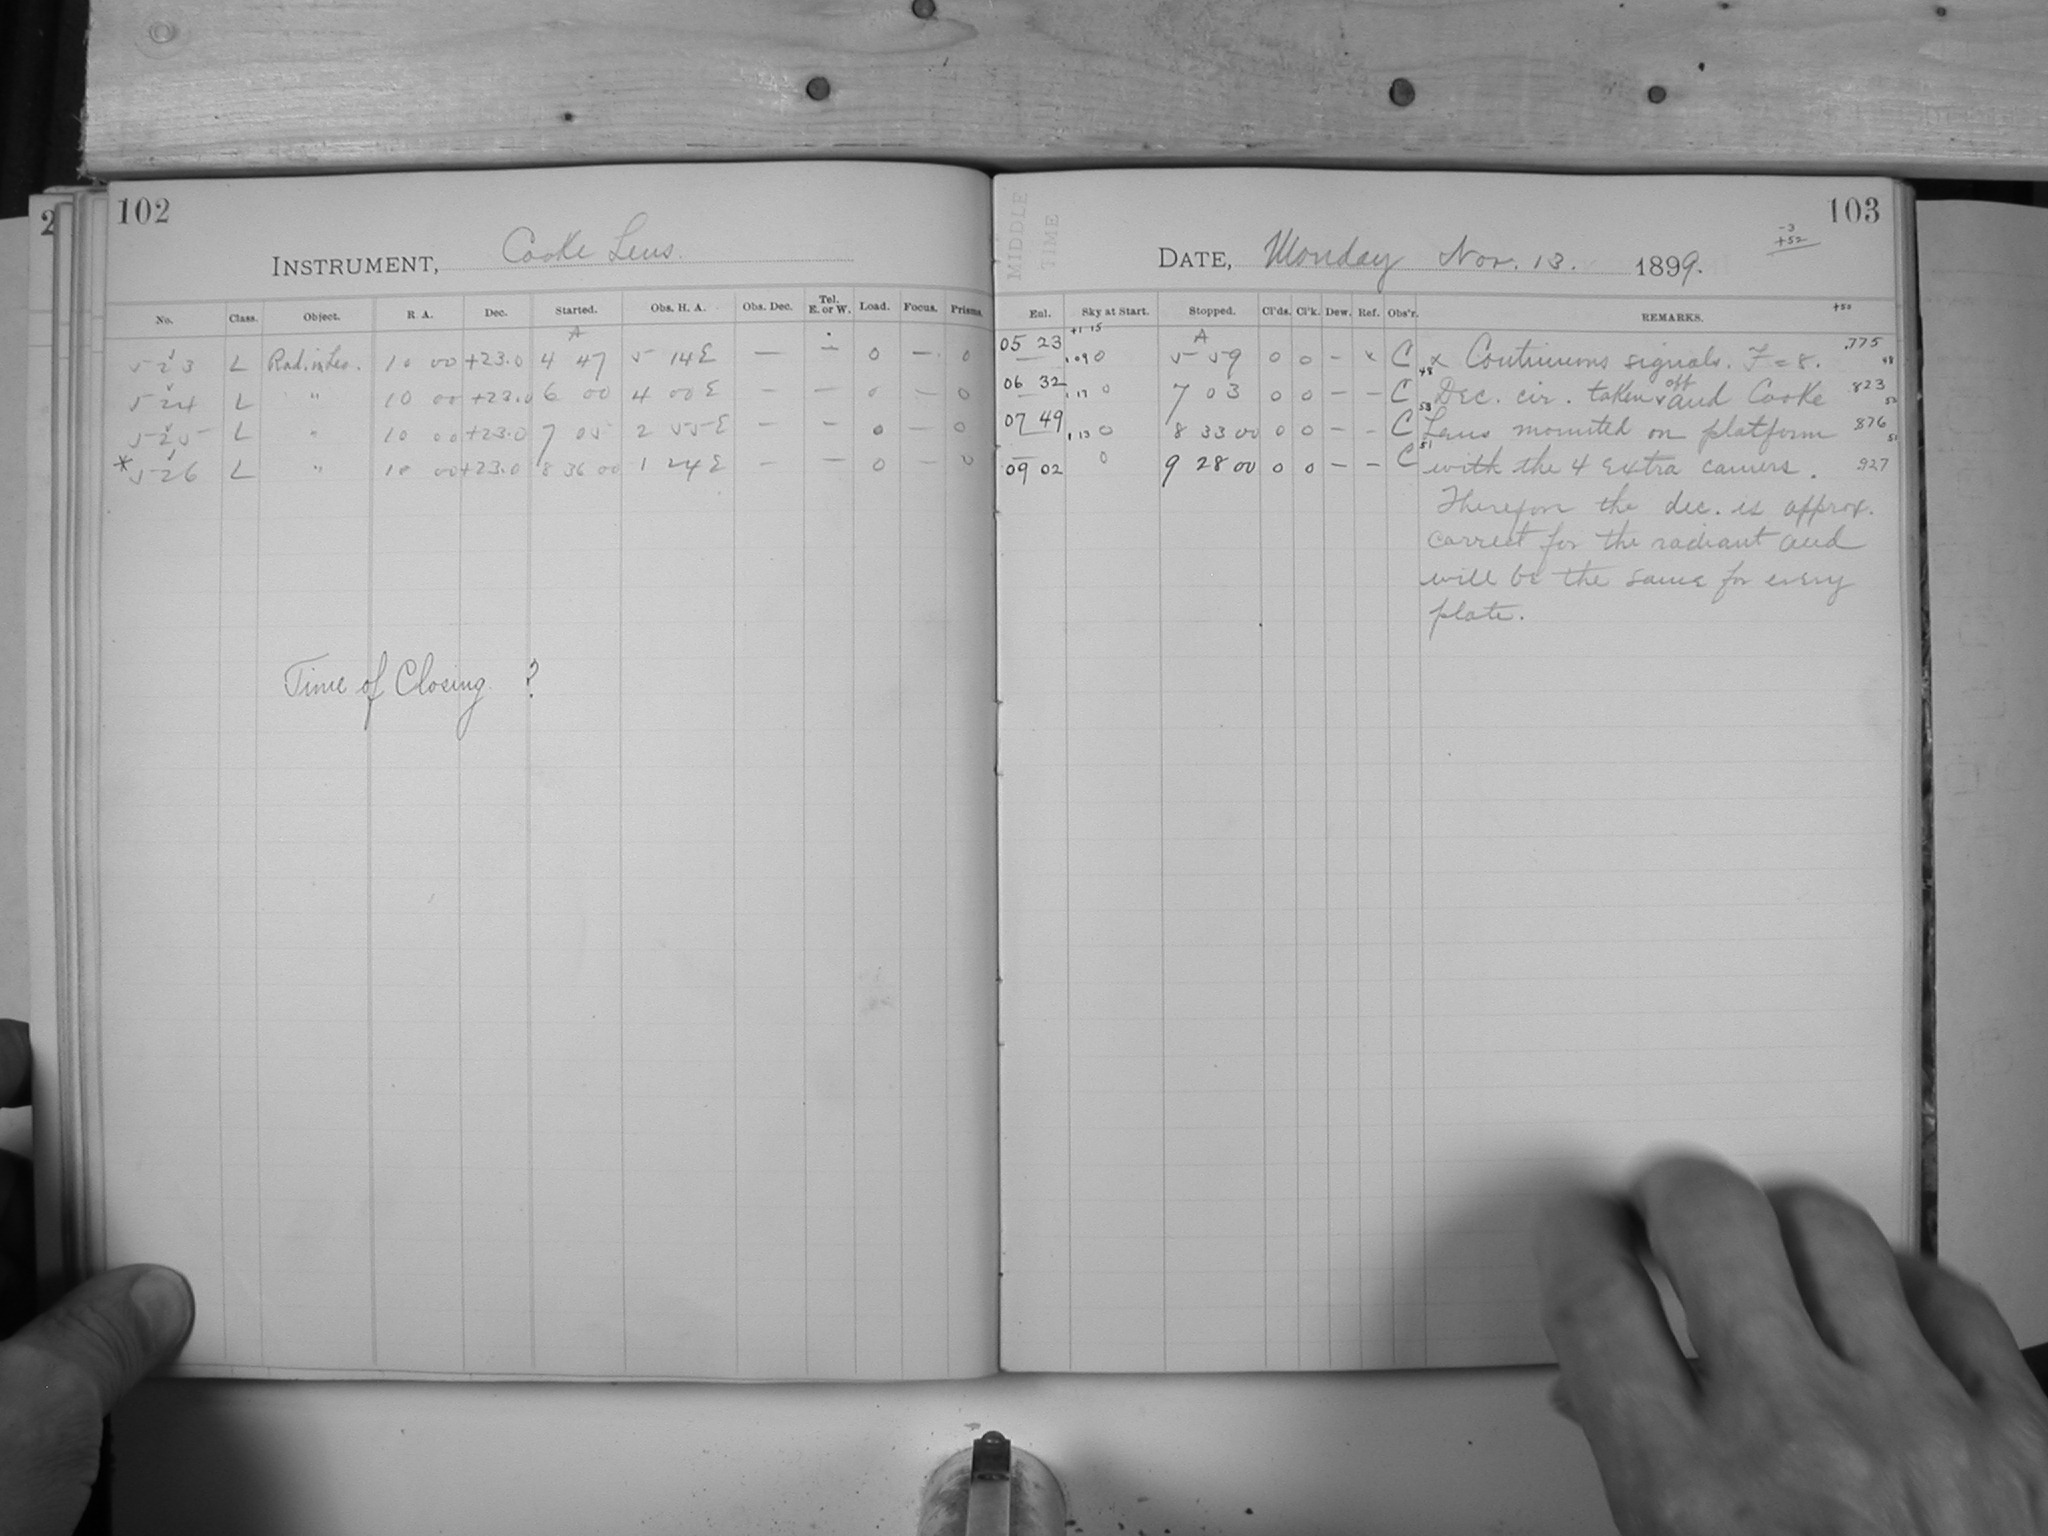 2
102
INSTRUMENT, Cooke Lens.
No. Class. Object. R. A. Dec. Started. Obs. H. A. Obs. Dec. Tel. E. or W. Load. Focus. Prisms.
A
523 L Rad. in Leo. 10 00 +23.0 4 47 5 14 E — — 0 — 0
524 L " 10 00 +23.0 6 00 4 00 E — — 0 — 0
525 L " 10 00 +23.0 7 05 2 55 E — — 0 — 0
*526 L " 10 00 +23.0 8 36 00 1 24 E — — 0 — 0
Time of Closing ?
MIDDLE TIME
103
-3
+52
DATE, Monday Nov. 13. 1899.
Enl. Sky at Start. Stopped. Cl'ds. Cl'k. Dew. Ref. Obs'r. REMARKS. +50
+1 15 A
05 23 .09 0 5 59 0 0 — x C x Continuous signals. F = 8. .775
48 48
06 32 .17 0 7 03 0 0 — — C Dec. cir. taken off and Cooke 823
53 52
07 49 .13 0 8 33 00 0 0 — - C Lens mounted on platform 876
51 51
09 02 0 9 28 00 0 0 — — C with the 4 extra camers. .927
Therefore the dec. is approx.
correct for the radiant and
will be the same for every
plate.